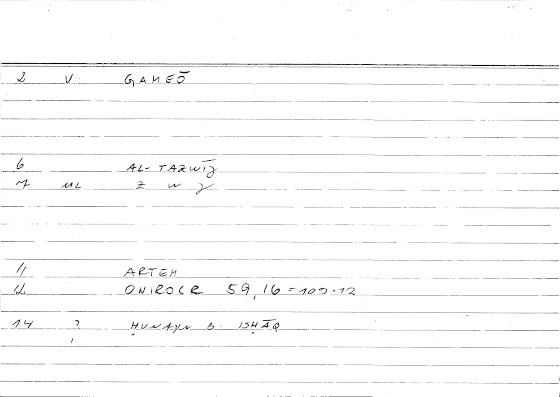 2 V GAMEŌ
6 AL-TAZWĪJ
7 ML Z W J
11 ARTEM
12 ONIROCR 59,16 = 109.12
14 ? ḤUNAYN B. ISḤĀQ